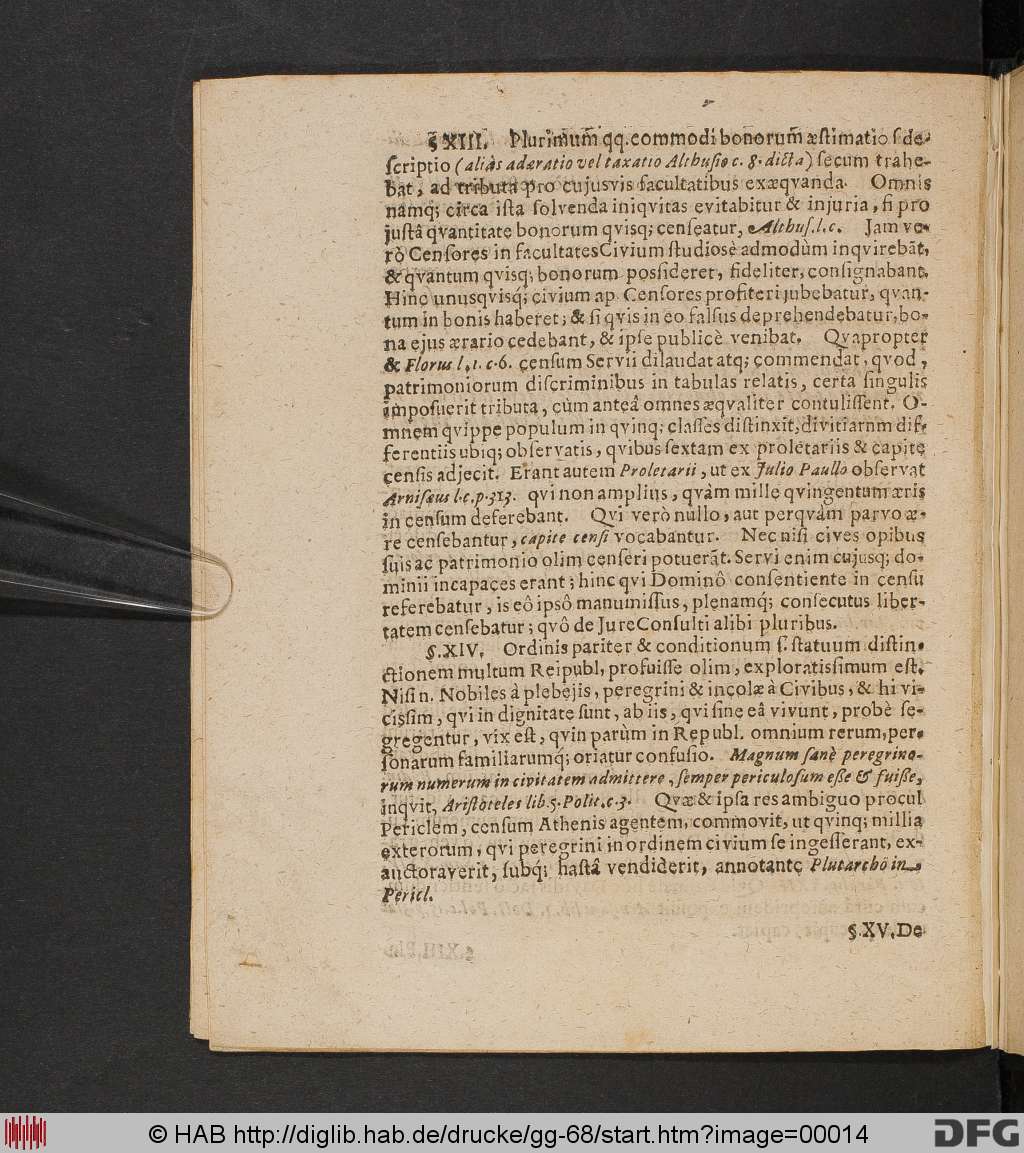 § XIII. Plurimum̃ qq. commodi bonorum̃ æstimatio s. de-
scriptio (aliàs adæratio vel taxatio Althusio c. 8. dicta) secum trahe-
bat, ad tributa pro cujusvis facultatibus exæqvanda. Omnis
namq; circa ista solvenda iniqvitas evitabitur & injuria, si pro
justâ qvantitate bonorum qvisq; censeatur, Althus. l. c. Jam ve-
rò Censores in facultates Civium studiosè admodùm inqvirebãt,
& qvantum qvisq; bonorum possideret, fideliter, consignabant.
Hinc unusqvisq́; civium ap. Censores profiteri jubebatur, qvan-
tum in bonis haberet; & si qvis in eo falsus deprehendebatur, bo-
na ejus ærario cedebant, & ipse publicè venibat. Qvapropter
& Florus l. 1. c. 6. censum Servii dilaudat atq; commendat, qvod,
patrimoniorum discriminibus in tabulas relatis, certa singulis
imposuerit tributa, cùm anteâ omnes æqvaliter contulissent. O-
mnem qvippe populum in qvinq; classes distinxit, divitiarnm dif-
ferentiis ubiq; observatis, qvibus sextam ex proletariis & capite
censis adjecit. Erant autem Proletarii, ut ex Julio Paullo observat
Arnisæus l. c. p. 313. qvi non amplius, qvàm mille qvingentum æris
in censum deferebant. Qvi verò nullo, aut perqvàm parvo æ-
re censebantur, capite censi vocabantur. Nec nisi cives opibus
suis ac patrimonio olim censeri potuerãt. Servi enim cujusq; do-
minii incapaces erant; hinc qvi Dominô consentiente in censu
referebatur, is eô ipsô manumissus, plenamq́; consecutus liber-
tatem censebatur; qvô de JureConsulti alibi pluribus.
§. XIV. Ordinis pariter & conditionum s. statuum distin-
ctionem multum Reipubl, profuisse olim, exploratissimum est.
Nisi n. Nobiles à plebejis, peregrini & incolæ à Civibus, & hi vi-
cissim, qvi in dignitate sunt, ab iis, qvi sine eâ vivunt, probè se-
gregentur, vix est, qvin parùm in Republ. omnium rerum, per-
sonarum familiarumq́; oriatur confusio. Magnum sanè peregrino-
rum numerum in civitatem admittere, semper periculosum esse & fuisse,
inqvit, Aristoteles lib. 5. Polit. c. 3. Qvæ & ipsa res ambiguo procul
Periclem, censum Athenis agentem, commovit, ut qvinq; millia
exterorum, qvi peregrini in ordinem civium se ingesserant, ex-
auctoraverit, subq́; hastâ vendiderit, annotante Plutarchô in
Pericl.
§. XV. De
© HAB http://diglib.hab.de/drucke/gg-68/start.htm?image=00014
DFG